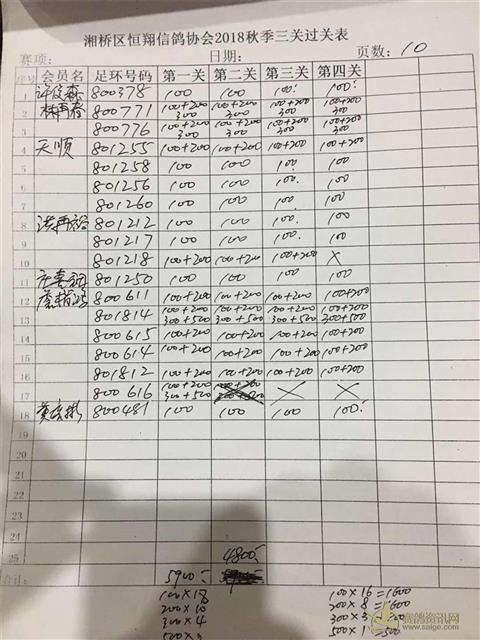 湘桥区恒翔信鸽协会2018秋季三关过关表
赛项： 日期： 页数：10
序号 会员名 足环号码 第一关 第二关 第三关 第四关
1 800378 100 100 100 100
2 林再春 800771 100+200 300 100+200 300 100+200 300 100+200 300
3 800776 100+200 300 100+200 300 100+200 300 100+200 300
4 天顺 801255 100+200 100+200 100+200 100+200
5 801258 100 100 100 100
6 801256 100 100 100 100
7 801260 100 100 100 100
8 801212 100 100 100 100
9 801217 100 100 100 100
10 801218 100+200 100+200 100+200 X
11 801250 100 100 100 100
12 800611 100+200 100+200 100+200 100+200
13 801814 100+200 300+500 100+200 300+500 100+200 300+500 100+200 300+500
14 800615 100+200 100+200 100+200 100+200
15 800614 100+200 100+200 100+200 100+200
16 801812 100+200 100+200 100+200 100+200
17 800616 100+200 300+500 X X
18 800481 100 100 100 100
19
20
21
22
23
24
25 4800
合计： 5900
100×18 100×16=1600
200×10 200×8=1600
300×4 300×3=
500×1=500
赛鸽资讯网
www.saige.com